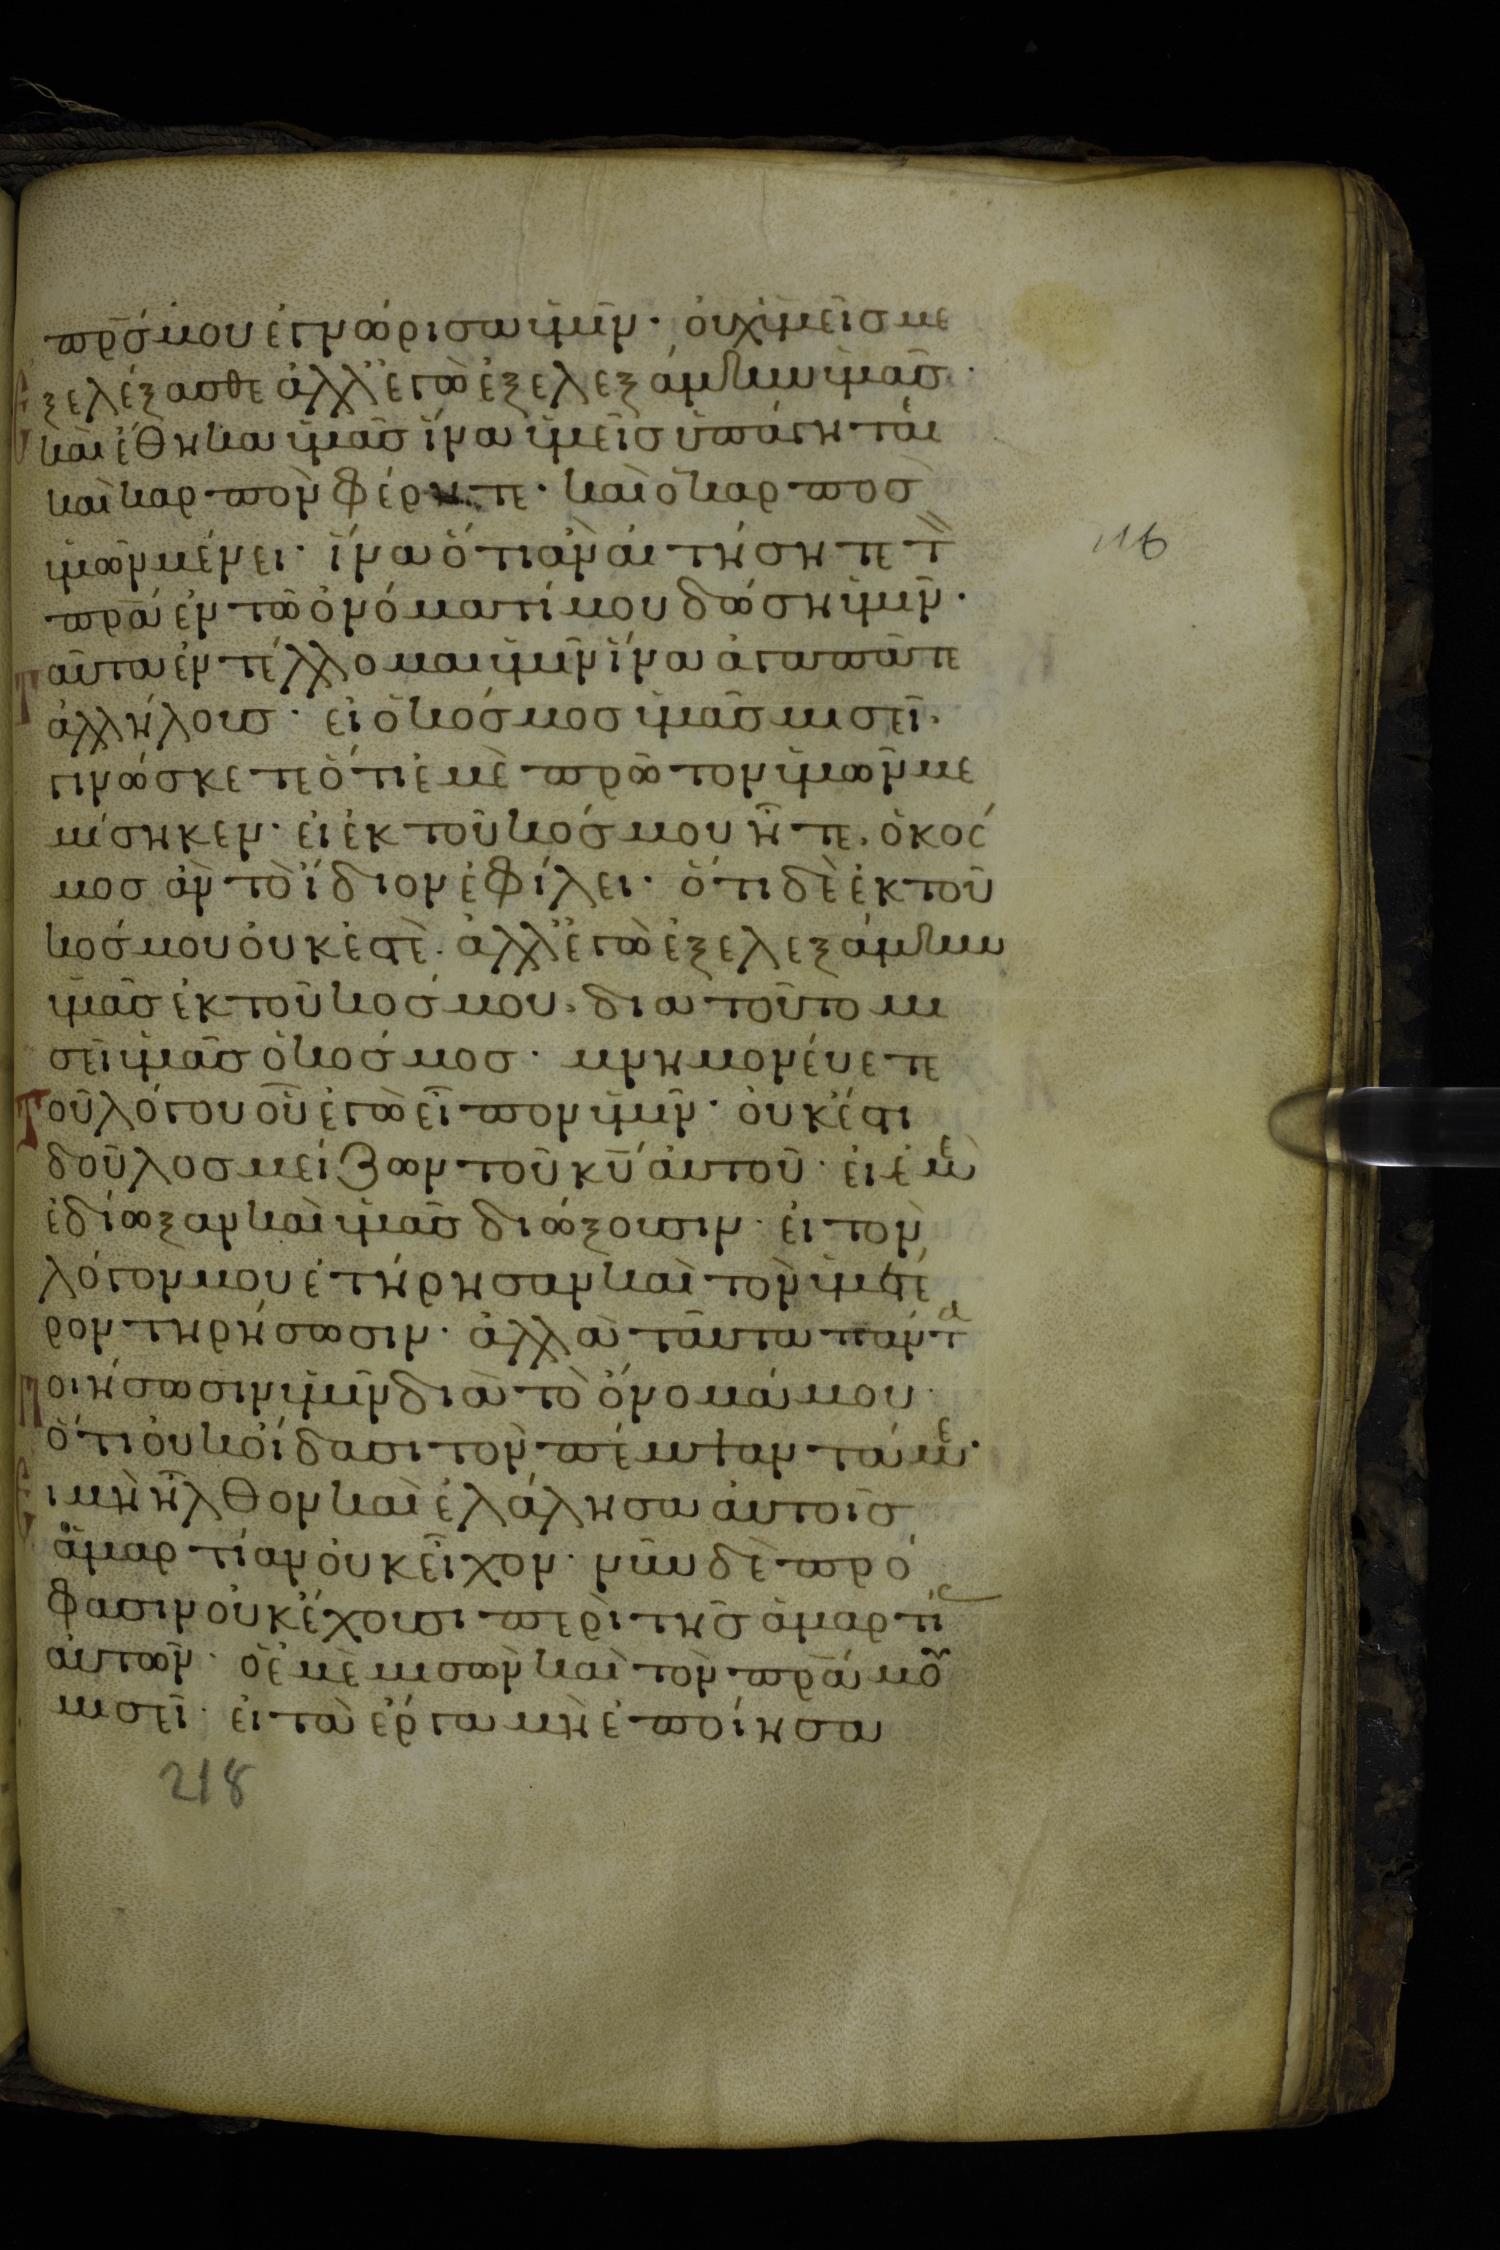 πρ̅ς μου ἐγνώρισα ὑμῖν· οὐχ ὑμεῖς με
ξελέξασθε ἀλλ' ἐγὼ ἐξελεξάμην ὑμᾶς·
καὶ ἔθηκα ὑμᾶς ἵνα ὑμεῖς ὑπάγηται
καὶ καρπὸν φέρητε· καὶ ὁ καρπὸς
ὑμῶν μένει· ἵνα ὅτι ἂν αἰτήσητε τ
πρ̅α ἐν τῶ ὀνόματί μου δώση ὑμῖν·
Ταῦτα ἐντέλλομαι ὑμῖν ἵνα ἀγαπᾶτε
ἀλλήλους· εἰ ὁ κόσμος ὑμᾶς μισεῖ·
γινώσκετε ὅτι ἐμὲ πρῶτον ὑμῶν με
μίσηκεν· εἰ ἐκ τοῦ κόσμου ἦτε· ὁ κόσ
μος ἂν τὸ ἴδιον ἐφίλει· ὅτι δὲ ἐκ τοῦ
κόσμου οὐκ ἐστὲ· ἀλλ' ἐγὼ ἐξελεξάμην
ὑμᾶς ἐκ τοῦ κόσμου· δια τοῦτο μι
σεῖ ὑμᾶς ὁ κόσμος· μνημονέυετε
Τοῦ λόγου οὗ ἐγὼ εἶπον ὑμῖν· οὐκ ἔστι
δοῦλος μείζων τοῦ κ̅υ αὐτοῦ· εἰ ἐμὲ
ἐδίωξαν καὶ ὑμᾶς διώξουσιν· εἰ τὸν
λόγον μου ἐτήρησαν καὶ τὸν ὑμέτε
ρον τηρήσωσιν· ἀλλὰ ταῦτα πάντα
Ποιήσωσιν ὑμῖν διὰ τὸ ὄνομά μου·
ὅτι οὐκ οἴδασι τὸν πέμψαντά με·
Ει μὴ ἦλθον καὶ ἐλάλησα αὐτοῖς
ἁμαρτίαν οὐκ εἶχον· νῦν δὲ πρό
φασιν οὐκ ἔχουσι περὶ τῆς ἁμαρτί
αὐτῶν· ὁ ἐμὲ μισῶν καὶ τὸν πρ̅α μου
μισεῖ· εἰ τὰ ἔργα μὴ ἐποίησα
116
218